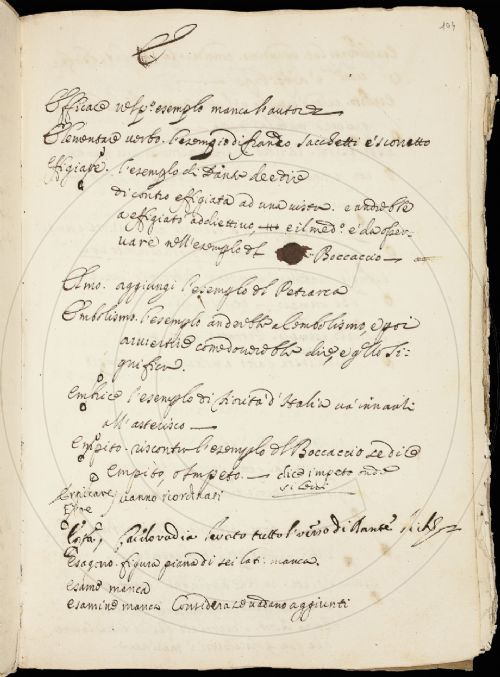 194
E
Efficace nel p.º esempio manca l'autore
Elementare verbo. l'esempio di Franco Sacchetti è scorretto
Effigiare. l'esempio di Dante dee dire
di contro effigiata ad una vista. e andrebbe
a effigiato addiettivo, e il med.º è da osser-
vare nell'esempio del Boccaccio
Elmo. aggiungi l'esempio del Petrarca
Embolismo. l'esempio andrebbe a embolismo, e poi
avvertire come dovrebbe dire, e quello si-
gnifica.
Embrice l'esempio di Città d'Italia va innanzi
all'asterisco
Empito. riscontra l'esempio del Boccaccio se dice
Empito, o Impeto. dice impeto
si levi
vanno riordinati
levato tutto l'verso di Dante
Esagono. figura piana di sei lati. manca.
esame manca
esamine manca Considera se vadano aggiunti